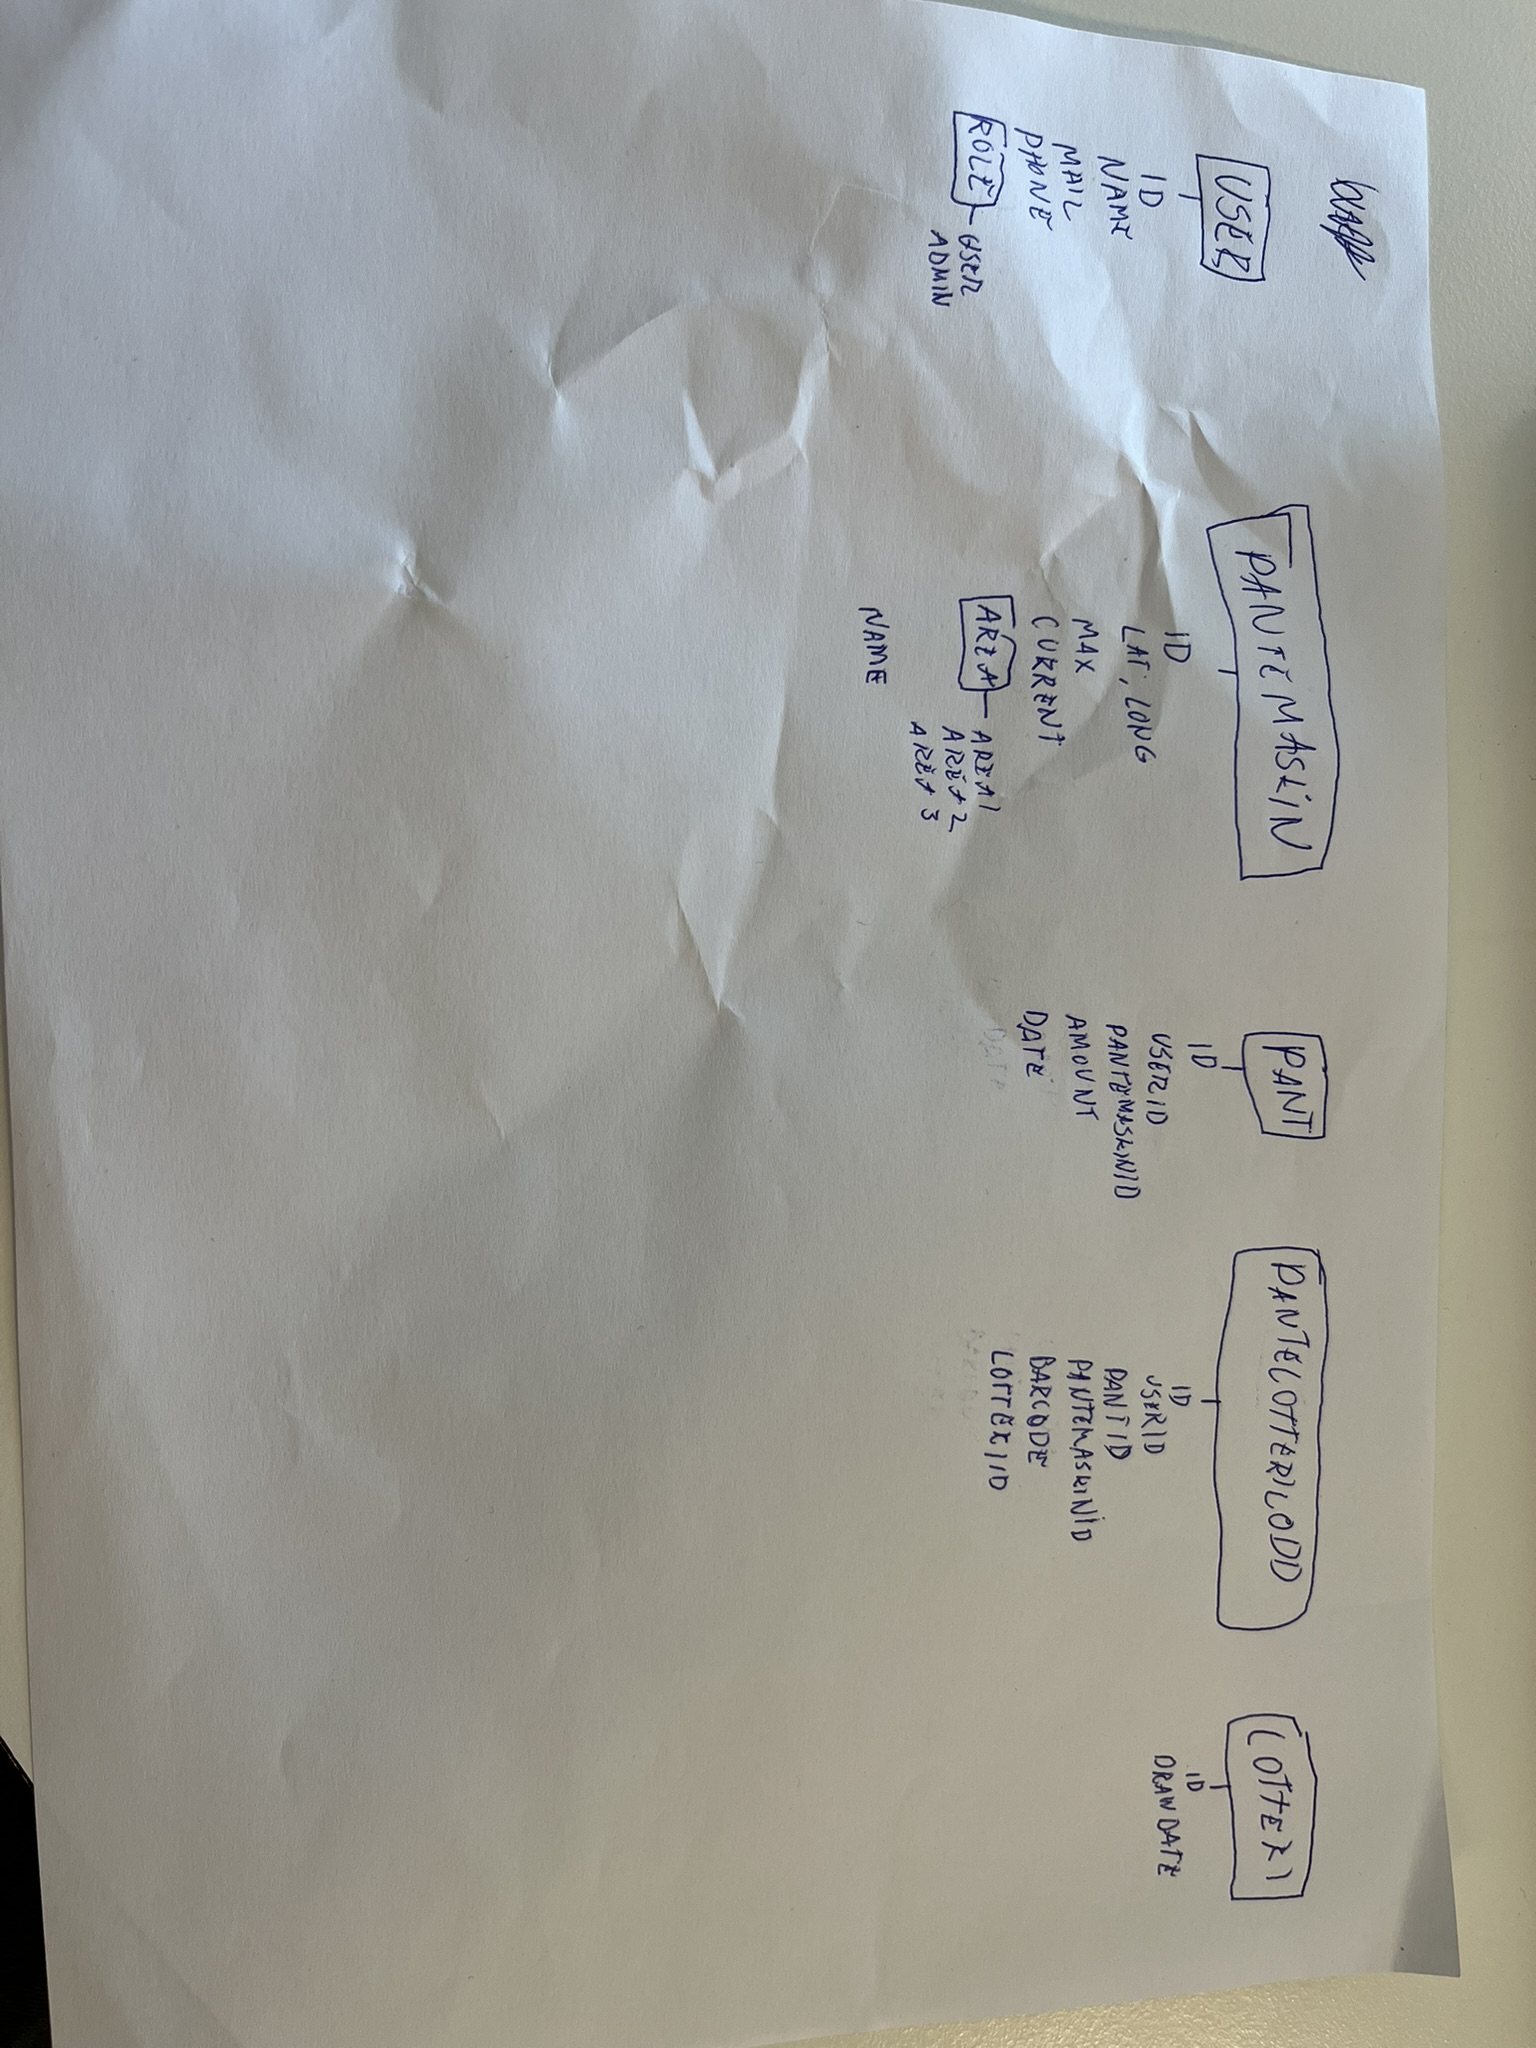 USER
ID
NAME
MAIL
PHONE
ROLE
USER
ADMIN
PANTEMASKIN
ID
LAT, LONG
MAX
CURRENT
AREA
AREA1
AREA2
AREA3
NAME
PANT
ID
USERID
PANTEMASKINID
AMOUNT
DATE
PANTELOTTERILODD
ID
USERID
PANTID
PANTEMASKINID
BARCODE
LOTTERIID
LOTTERI
ID
DRAWDATE